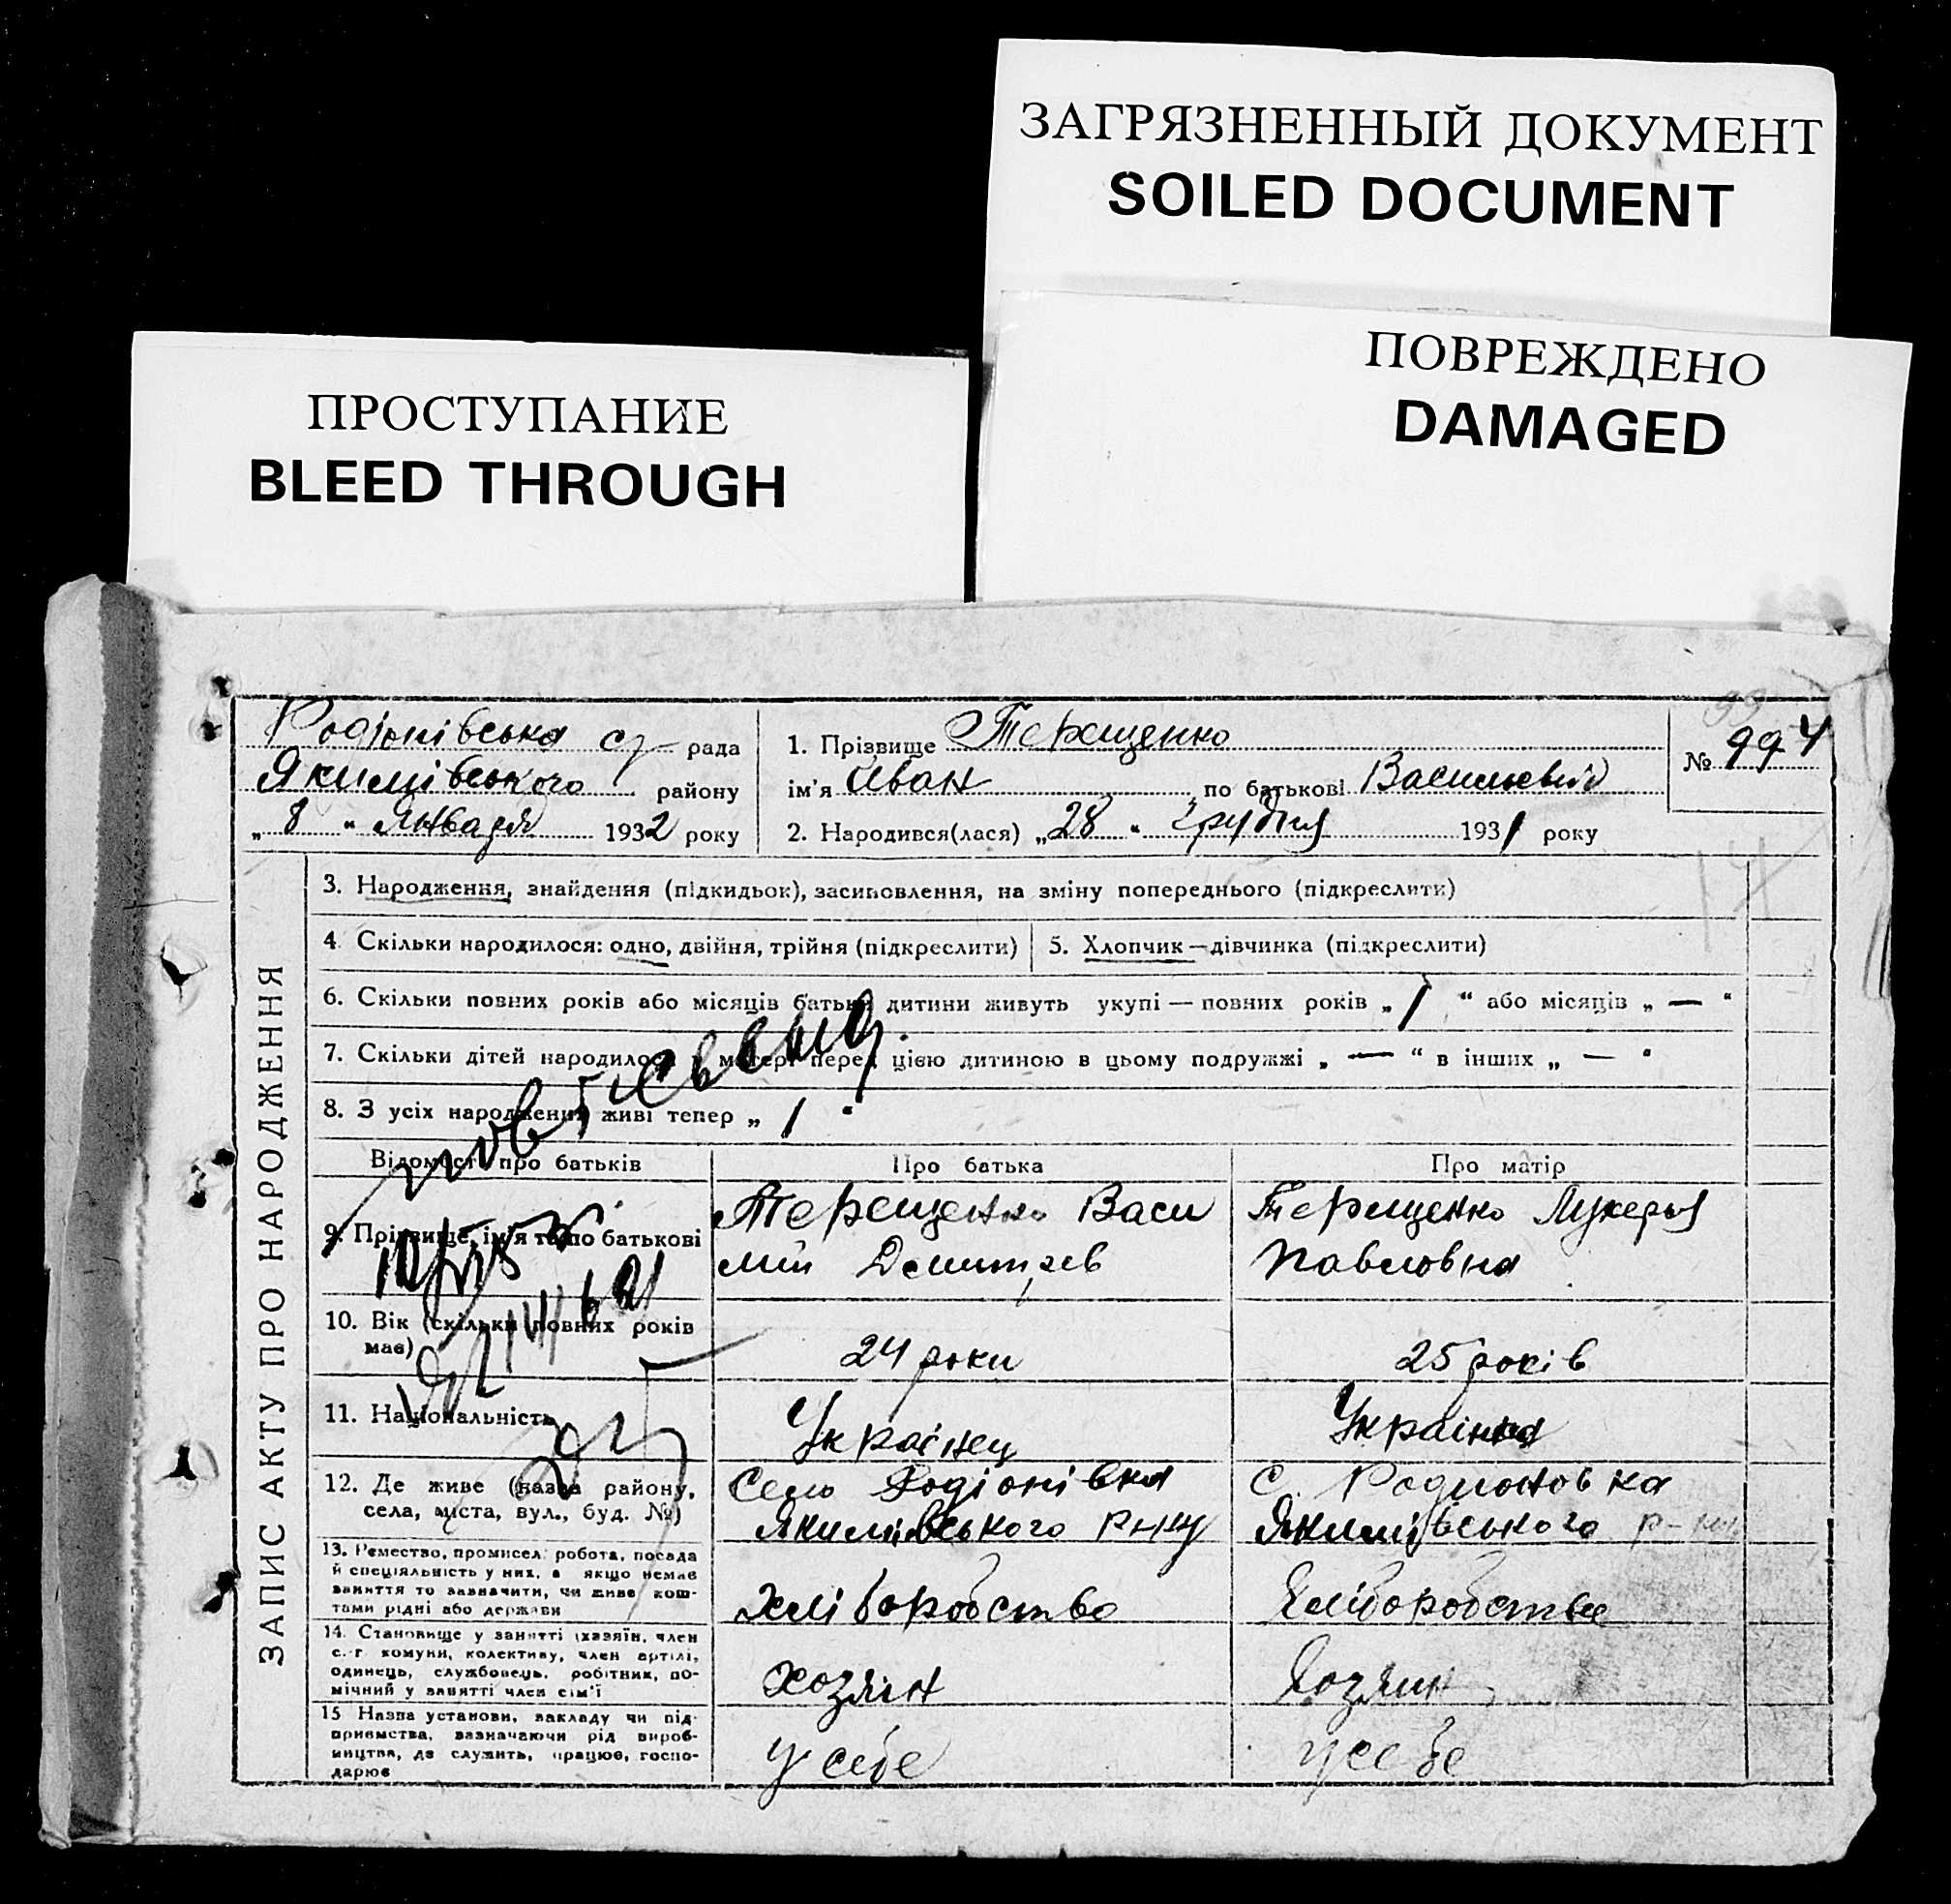 ЗАГРЯЗНЕННЫЙ ДОКУМЕНТ
SOILED DOCUMENT
ПОВРЕЖДЕНО
DAMAGED
ПРОСТУПАНИЕ
BLEED THROUGH
ЗАПИС АКТУ ПРО НАРОДЖЕННЯ
Родіонівська с/ рада
Якимівського району
„ 8 " Января 1932 року
1. Прізвище Терещенко
ім'я Иван по батькові Васильевич
2. Народився(лася) „28" грудня 1931 року
№ 994
3. Народження, знайдення (підкидьок), засиновлення, на зміну попереднього (підкреслити)
4. Скільки народилося: одно, двійня, трійня (підкреслити)
5. Хлопчик—дівчинка (підкреслити)
6. Скільки повних років або місяців батьки дитини живуть укупі — повних років „ 1 " або місяців „ — "
7. Скільки дітей народилося у матері перед цією дитиною в цьому подружжі „ — " в інших „ — "
8. З усіх народжених живі тепер „ 1 "
Відомості про батьків Про батька Про матір
9. Прізвище, ім'я та по батькові
Терещенко Васи
лий Дмитрев
Терещенко Лукерья
Павловна
10. Вік (скільки повних років
має)
24 роки
25 років
11. Національність
Українец
Українка
12. Де живе (назва району,
села, міста, вул., буд. №)
Село Родіонівка
Якимівського р-ну
С. Родионовка
Якимівського р-ну
13. Ремество, промисел, робота, посада
й спеціяльність у них, а якщо немає
заняття то зазначити, чи живе кош-
тами рідні або держави
Хліборобство
Хліборобство
14. Становище у занятті (хазяїн, член
с.-г. комуни, колективу, член артілі,
одинець, службовець, робітник, по-
мічний у занятті член сім'ї
Хозяин
Хозяин
15 Назва установи, закладу чи під-
приємства, зазначаючи рід вироб-
ництва, де служить, працює, госпо-
дарює
у себе
у себе